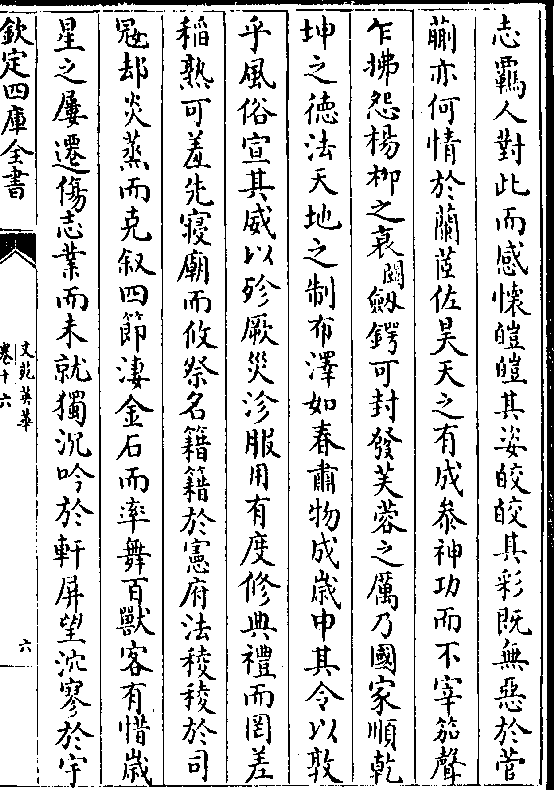 志羈人對此而感懷皚皚其姿皎皎其彩既無惡於菅
蒯亦何情於蘭茝佐昊天之有成叅神功而不宰笳聲
乍拂怨楊柳之衰闕劔鍔可封發芙蓉之厲乃國家順乾
坤之徳法天地之制布澤如春肅物成嵗申其令以敦
乎風俗宣其威以殄厥災沴服用有度修典禮而罔差
稲熟可羞先寢廟而攸祭名籍籍於憲府法稜稜於司
冦却炎蒸而克叙四節淒金石而率舞百獸客有惜嵗
星之屢遷傷志業而未就獨沉吟於軒屏望泬寥於宇
欽定四庫全書
文苑英華
卷十六
六